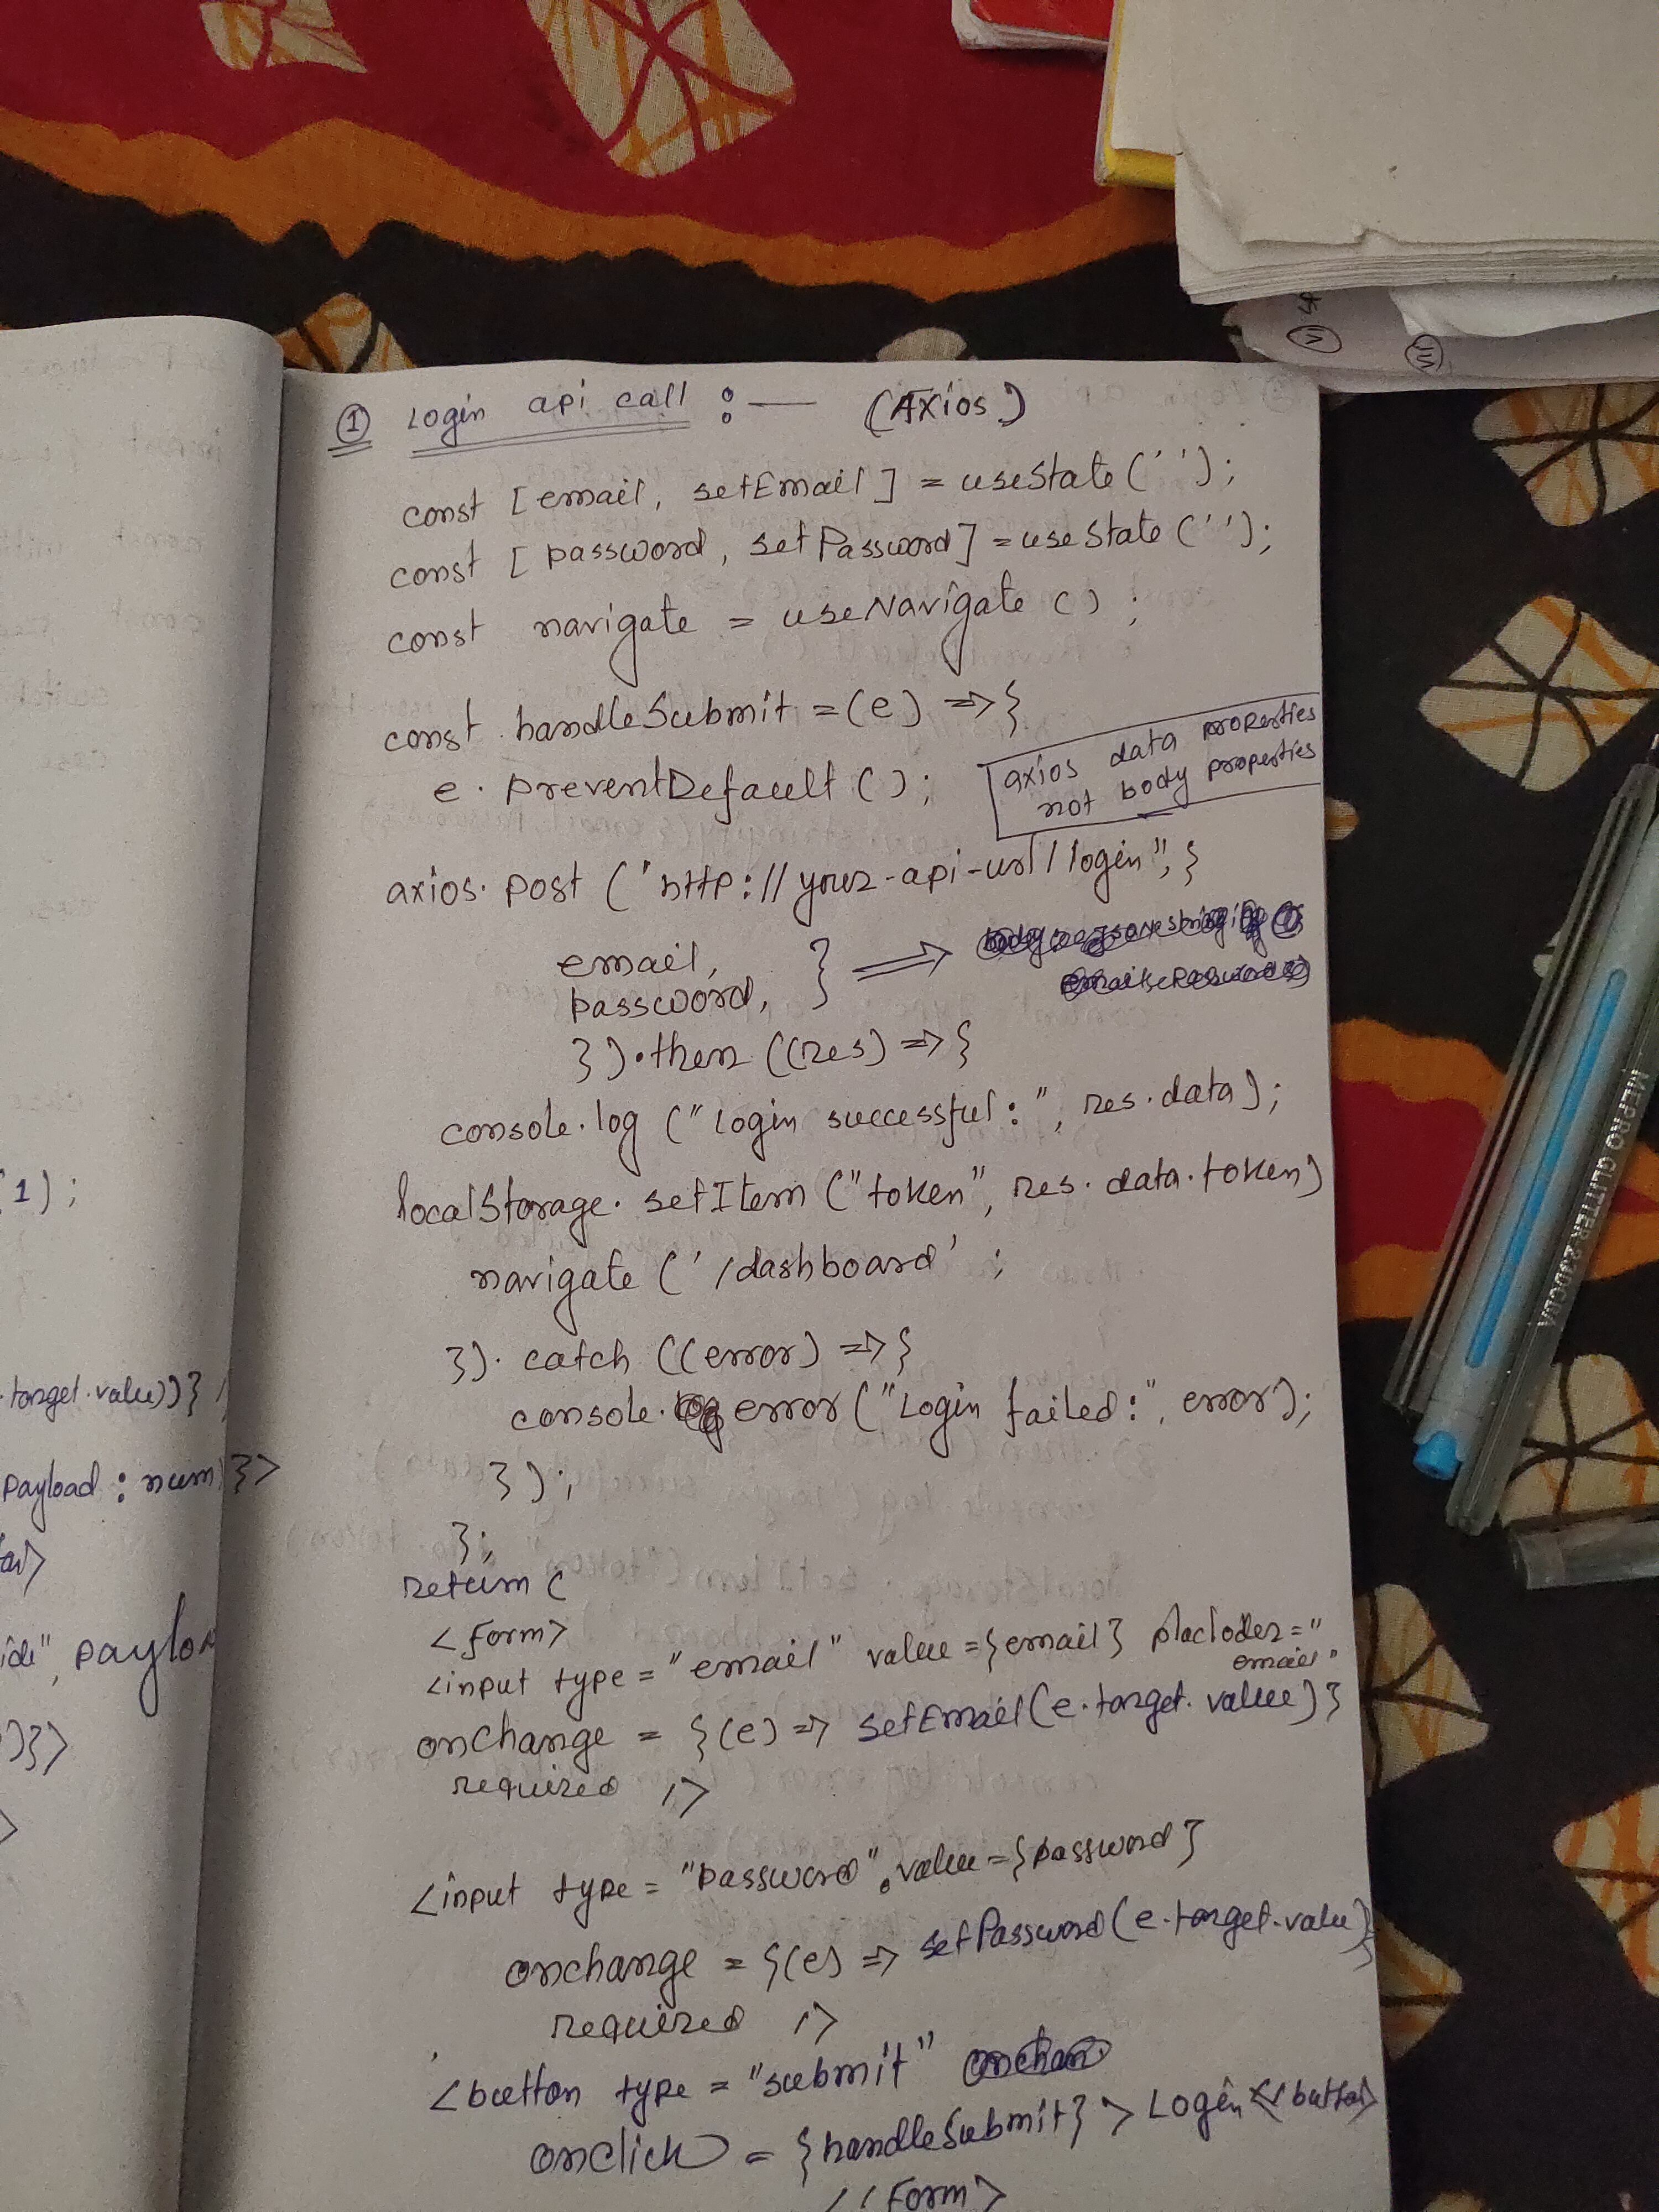 VI
VII
① Login api call :— (AXios)
const [email, setEmail] = useState('');
const [password, setPassword] = useState('');
const navigate = useNavigate();
const handleSubmit = (e) => {
e.preventDefault();
axios data properties
not body properties
axios.post('http://your-api-url/login", {
email,
password, } =>
}).then((res) => {
console.log("login successful:", res.data);
localStorage.setItem("token", res.data.token)
navigate('/dashboard';
}).catch((error) => {
console.error("Login failed:", error);
});
};
return (
<form>
<input type="email" value={email} placloder="
email"
onChange = {(e) => setEmail(e.target.value)}
required />
<input type="password", value={password}
onchange = {(e) => setPassword(e.target.value)}
required />
<button type="submit"
onclick = {handleSubmit} > Login </button>
</form>
1);
.target.value))} /
payload : num)}>
ide", paylo
)}>
MEPRO GLITTER